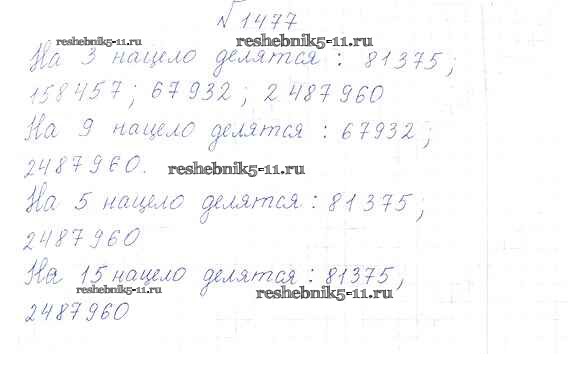 √1477
reshebnik5-11.ru
reshebnik5-11.ru
На 3 нацело делятся : 81375 ;
158457 ; 67932 ; 2487960
На 9 нацело делятся : 67932 ;
2487960.
reshebnik5-11.ru
На 5 нацело делятся : 81375 ;
2487960
На 15 нацело делятся : 81375,
reshebnik5-11.ru
reshebnik5-11.ru
2487960